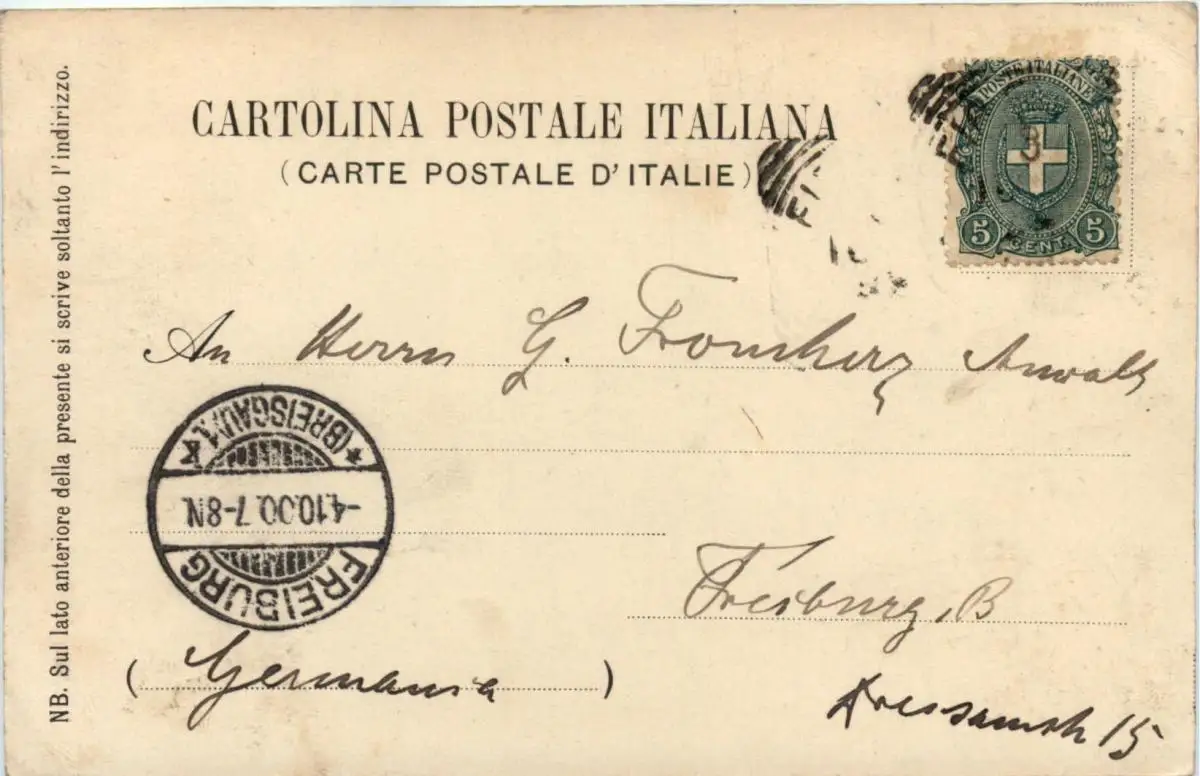 NB. Sul lato anteriore della presente si scrive soltanto l'indirizzo.
CARTOLINA POSTALE ITALIANA
(CARTE POSTALE D'ITALIE)
POSTE ITALIANE
5 CENT. 5
An Herrn G. Fromherz Anwalt
FREIBURG
-4.10.00.7-8N.
* (BREISGAU) 1. *
Freiburg, B
(Germania)
15